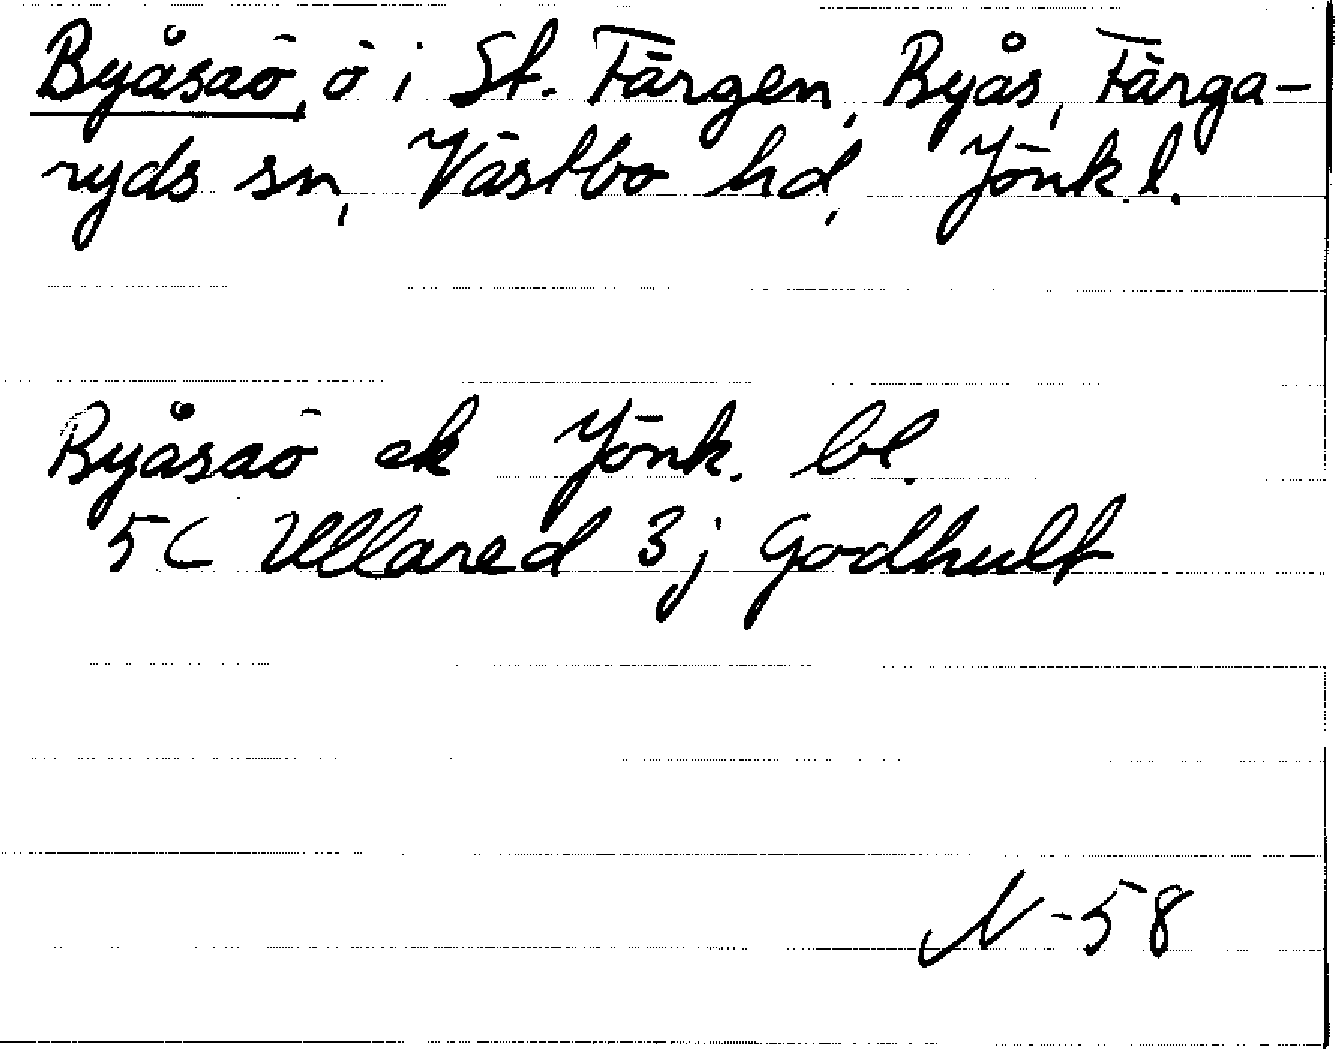 Byåsaö, ö i St. Färgen, Byås, Färga-
ryds sn, Västbo hd, Jönk.l.
Byåsaö ek Jönk. bl.
5C Ullared 3j Godhult
N-58